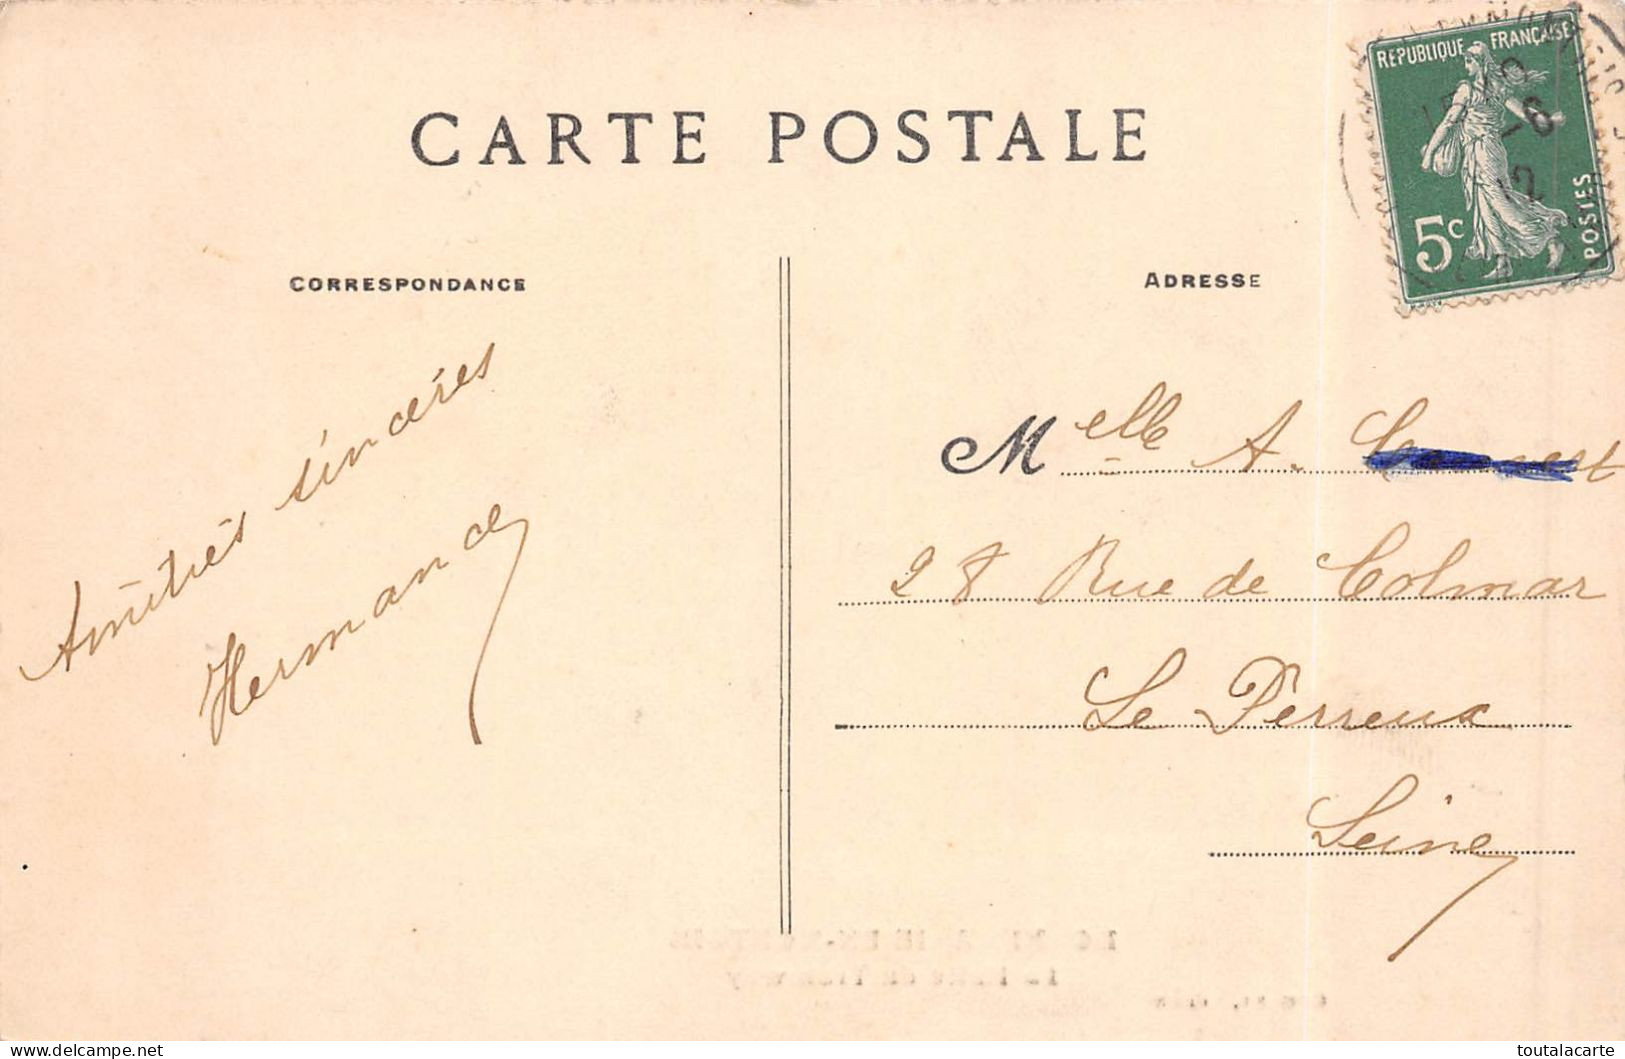 CARTE POSTALE
RÉPUBLIQUE FRANÇAISE
5c
POSTES
CORRESPONDANCE
ADRESSE
Amitiés sincères
Hermance
Melle A.
28 Rue de Colmar
Le Perreux
Seine
www.delcampe.net
toutalacarte